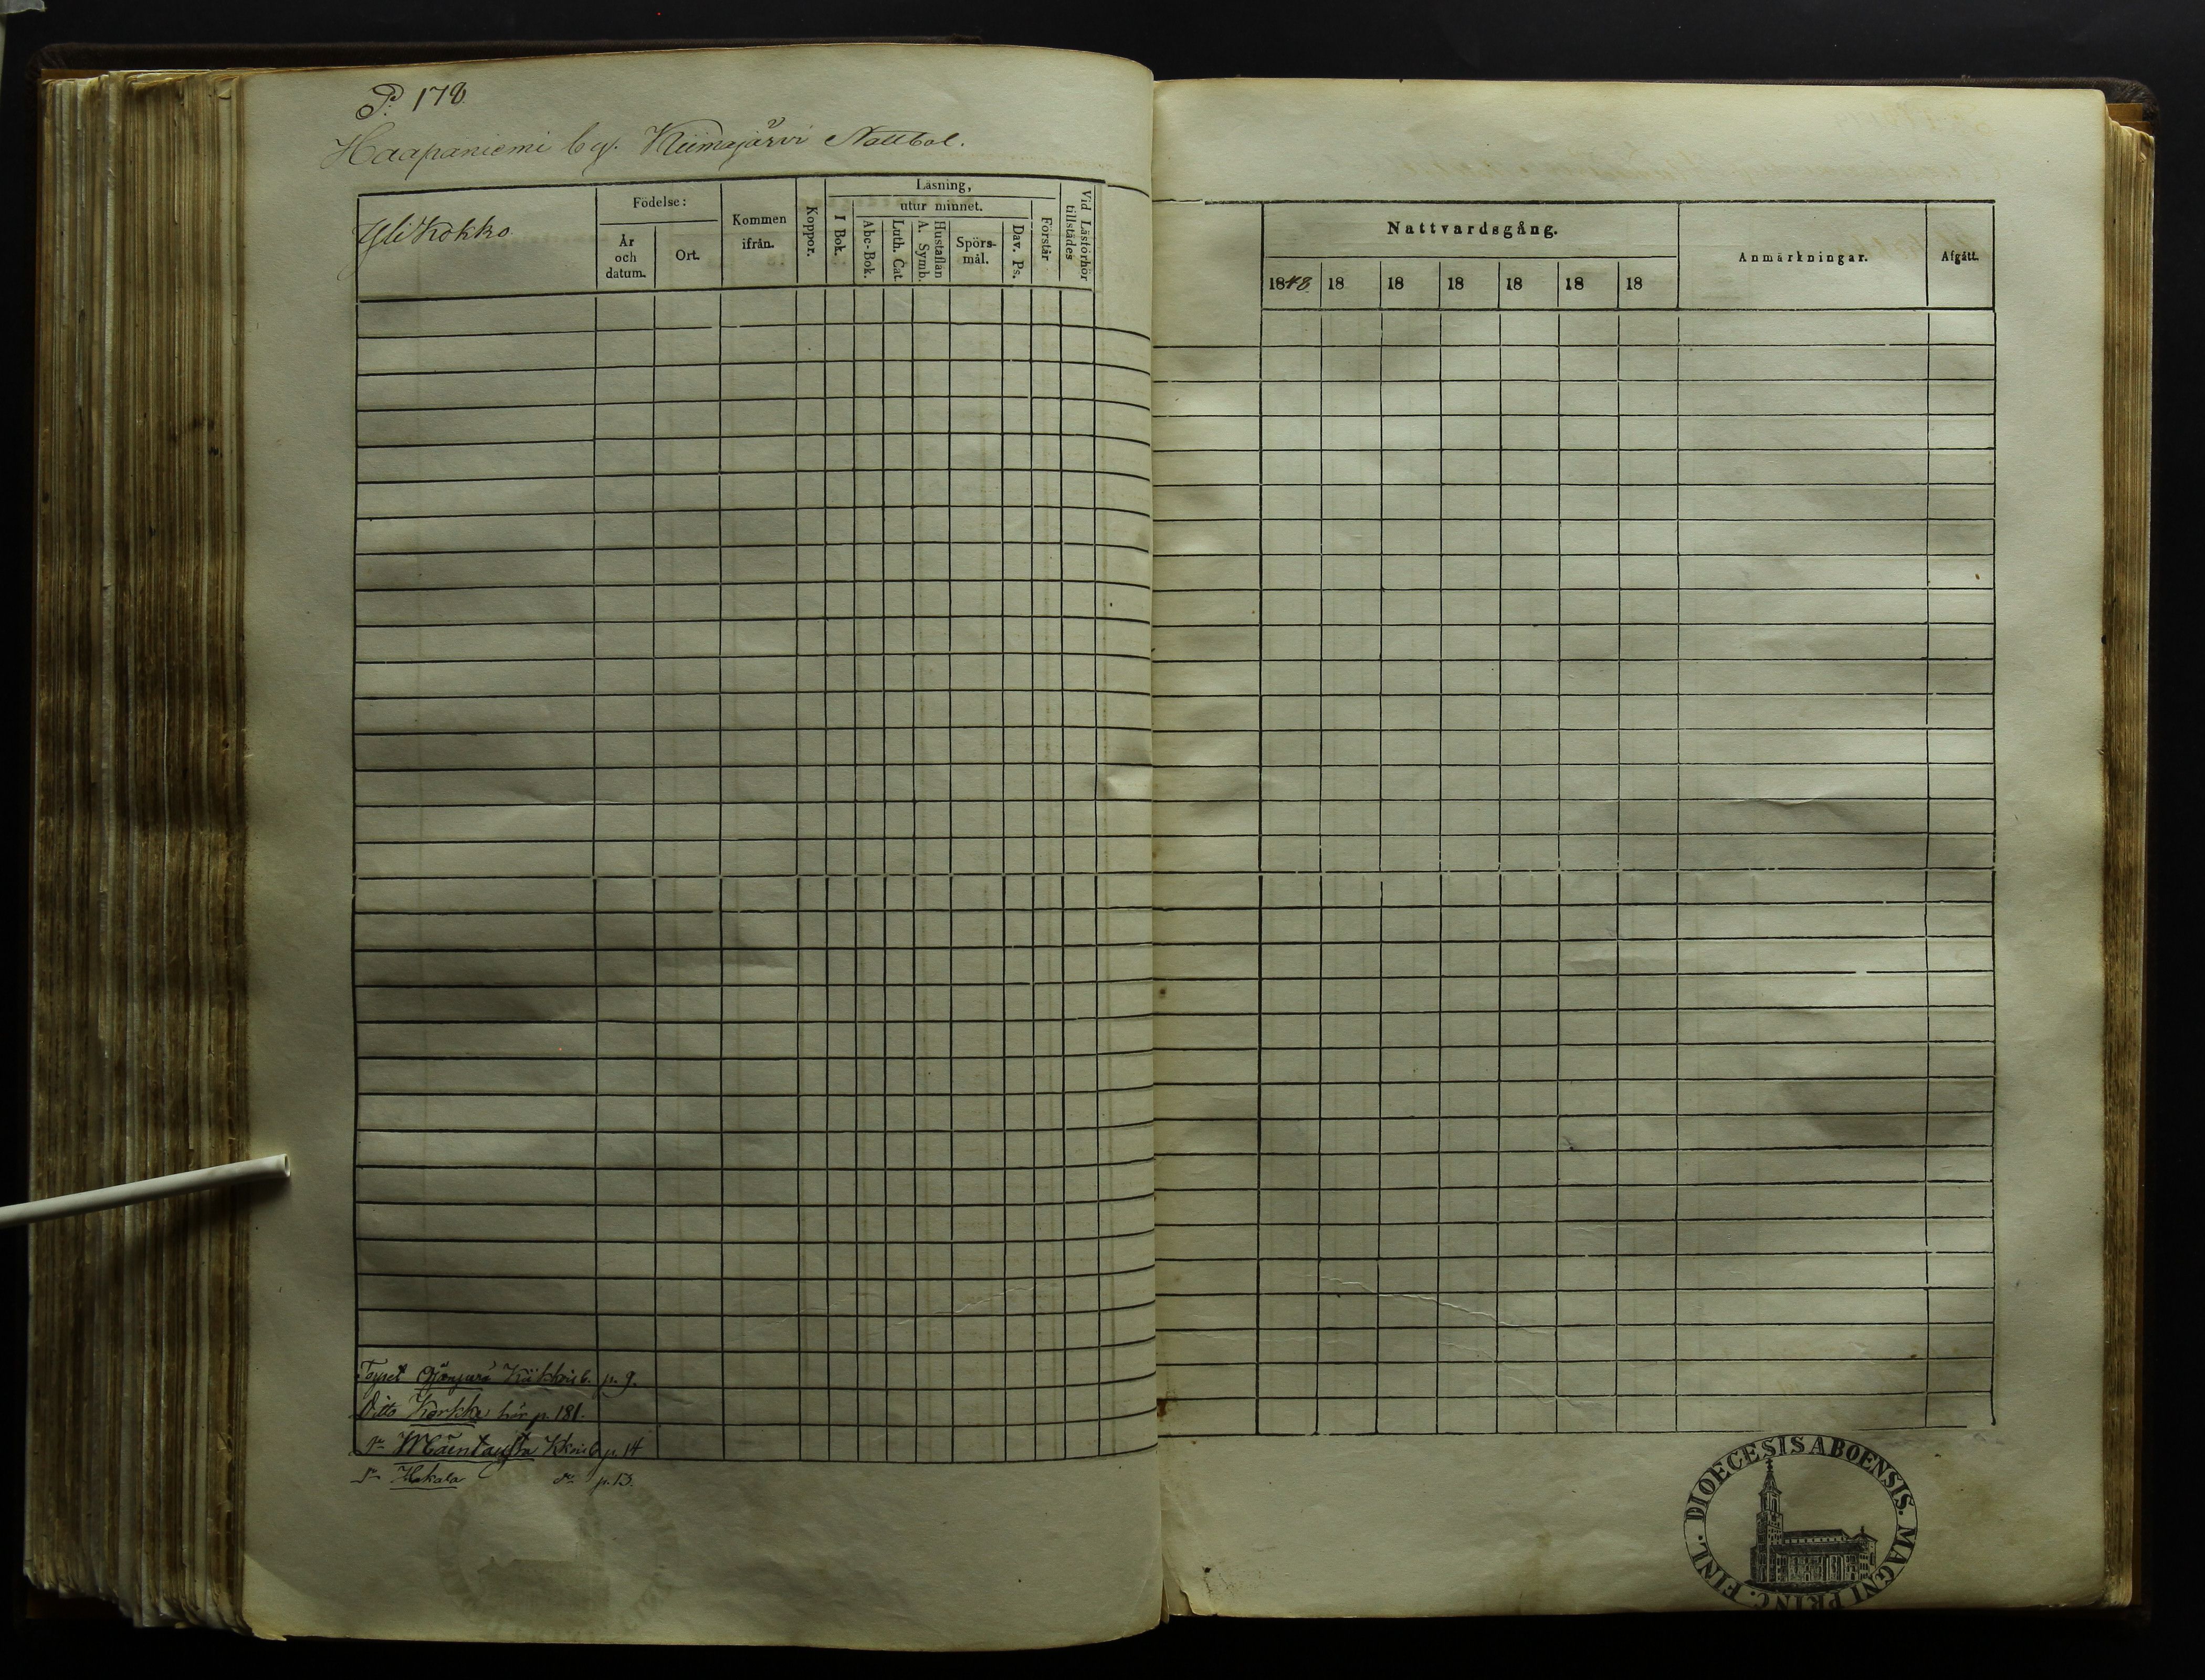 P. 178
Haapaniemi by. Kiimajärvi Nattbol.
Yli Kokko
Födelse:
År och datum.
Ort.
Kommen ifrån.
Koppor.
Läsning,
I Bok.
utur minnet.
Abc-Bok.
Luth. Cat.
Hustaflan A. Symb.
Spörs-mål.
Dav. Ps.
Förstår
Vid Läsförhör tillstädes
p. 9.
Ditto Korkke här p. 181.
Mäentausta p. 14
Hakala p. 13.
Nattvardsgång.
1848 18 18 18 18 18 18
Anmärkningar.
Afgått.
DIOECESIS ABOENSIS. MAGNI PRINC. FINL.